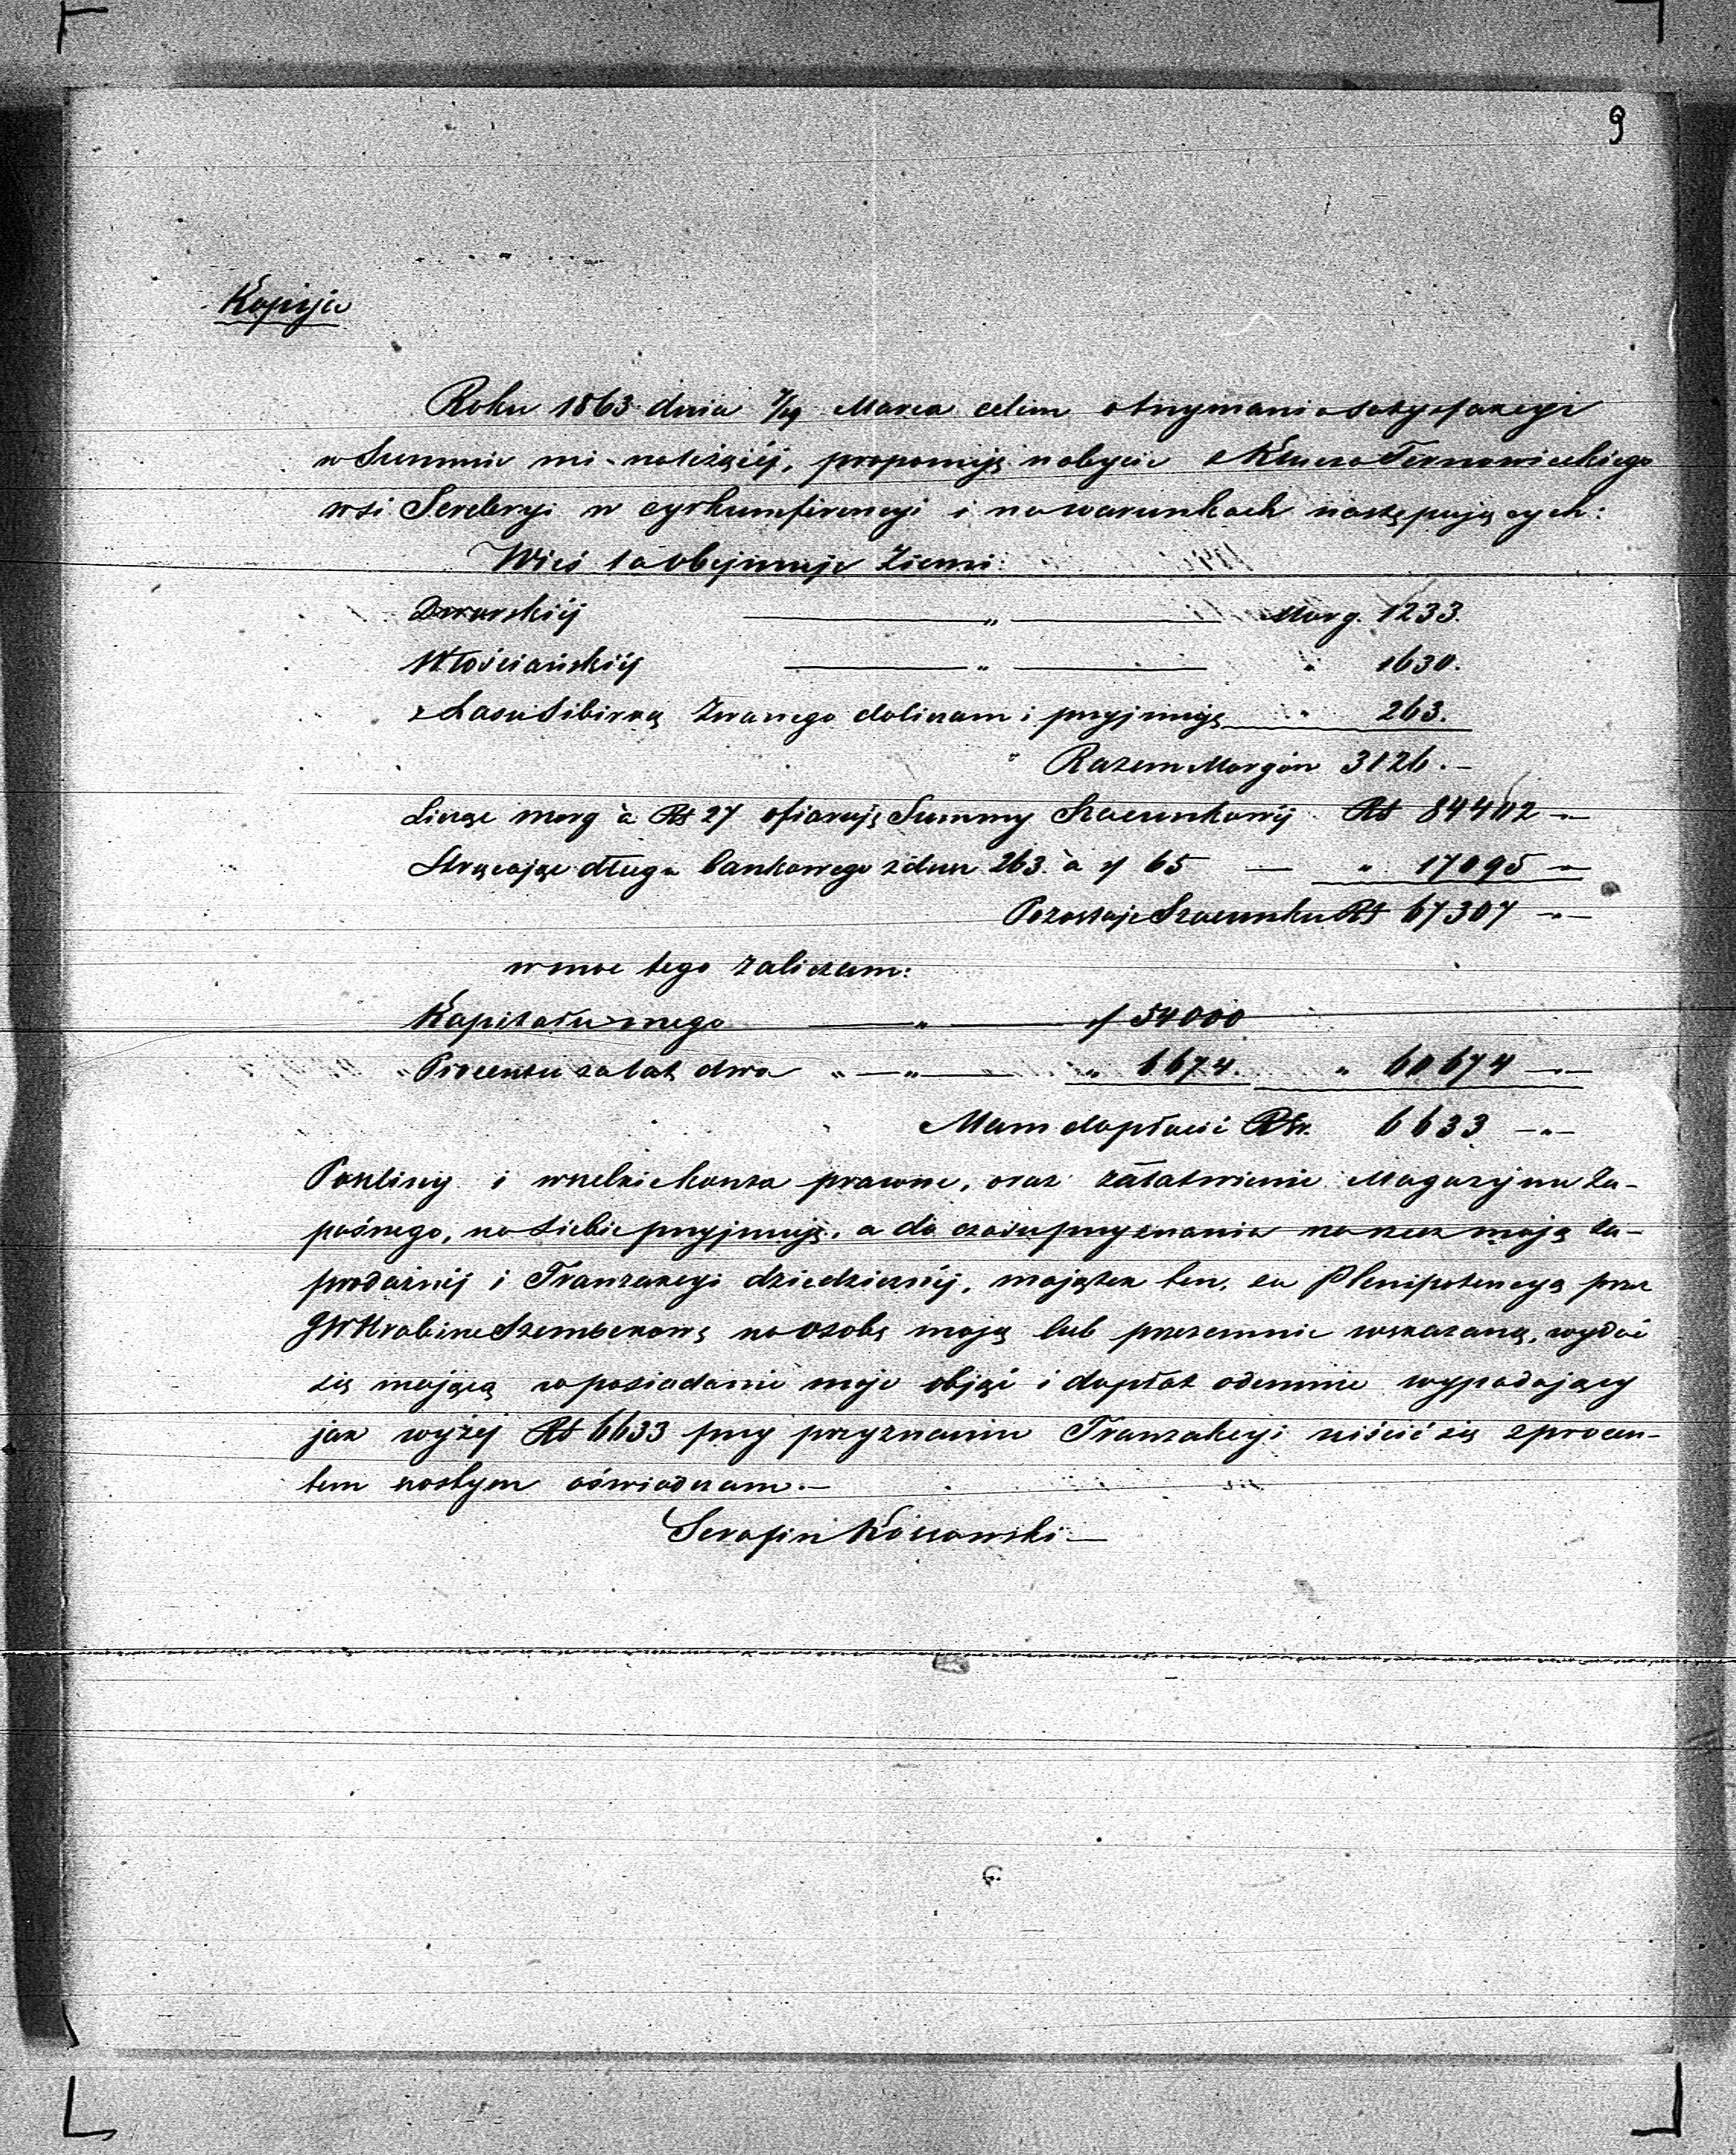 9
Kopija
Roku 1863 dnia 7/19 Marca celem otrzymania satysfakcyi
w Summie mi należącéj, proponuję nabycie z Klucza Ternowieckiego
wsi Serebryi w cyrkumferencyi i na warunkach następujących:
Wieś ta obejmuje Ziemi:
Dworskiéj — " — Morg. 1233.
Włościańskiéj — " — " 1630.
z Lasu Sibirką zwanego doliczam i przyjmuję " 263.
Razem Morgów 3126.—
Licząc morg à Rs 27 ofiaruję Summy Szacunkowéj Rs 84402 —
Strącając długu bankowego z dusz 263. à rs 65 — " 17095 —
Pozostaje Szacunku Rs 67307 —"—
w moc tego zaliczam:
Kapitału mego — " — rs 54000
Procentu za lat dwa " — " — " 6674. " 60674 —"—
Mam dopłacić Rsr. 6633 —"—
Poszliny i wszelkie koszta prawne, oraz załatwienie Magazynu Za-
paśnego, na siebie przyjmuję, a do czasu przyznania na rzecz moją za-
prodażnéj i Tranzakcyi dziedzicznéj, majątek ten, za Plenipotencyą przez
JW Hrabinę Szembekową na osobę moją lub przezemnie wskazaną, wydać
się mającą w posiadanie moje objąć i dopłat odemnie wypadający
jak wyżej Rs 6633 przy przyznaniu Tranzakcyi uiścić się z procen-
tem szóstym oświadczam.—
Serafin —